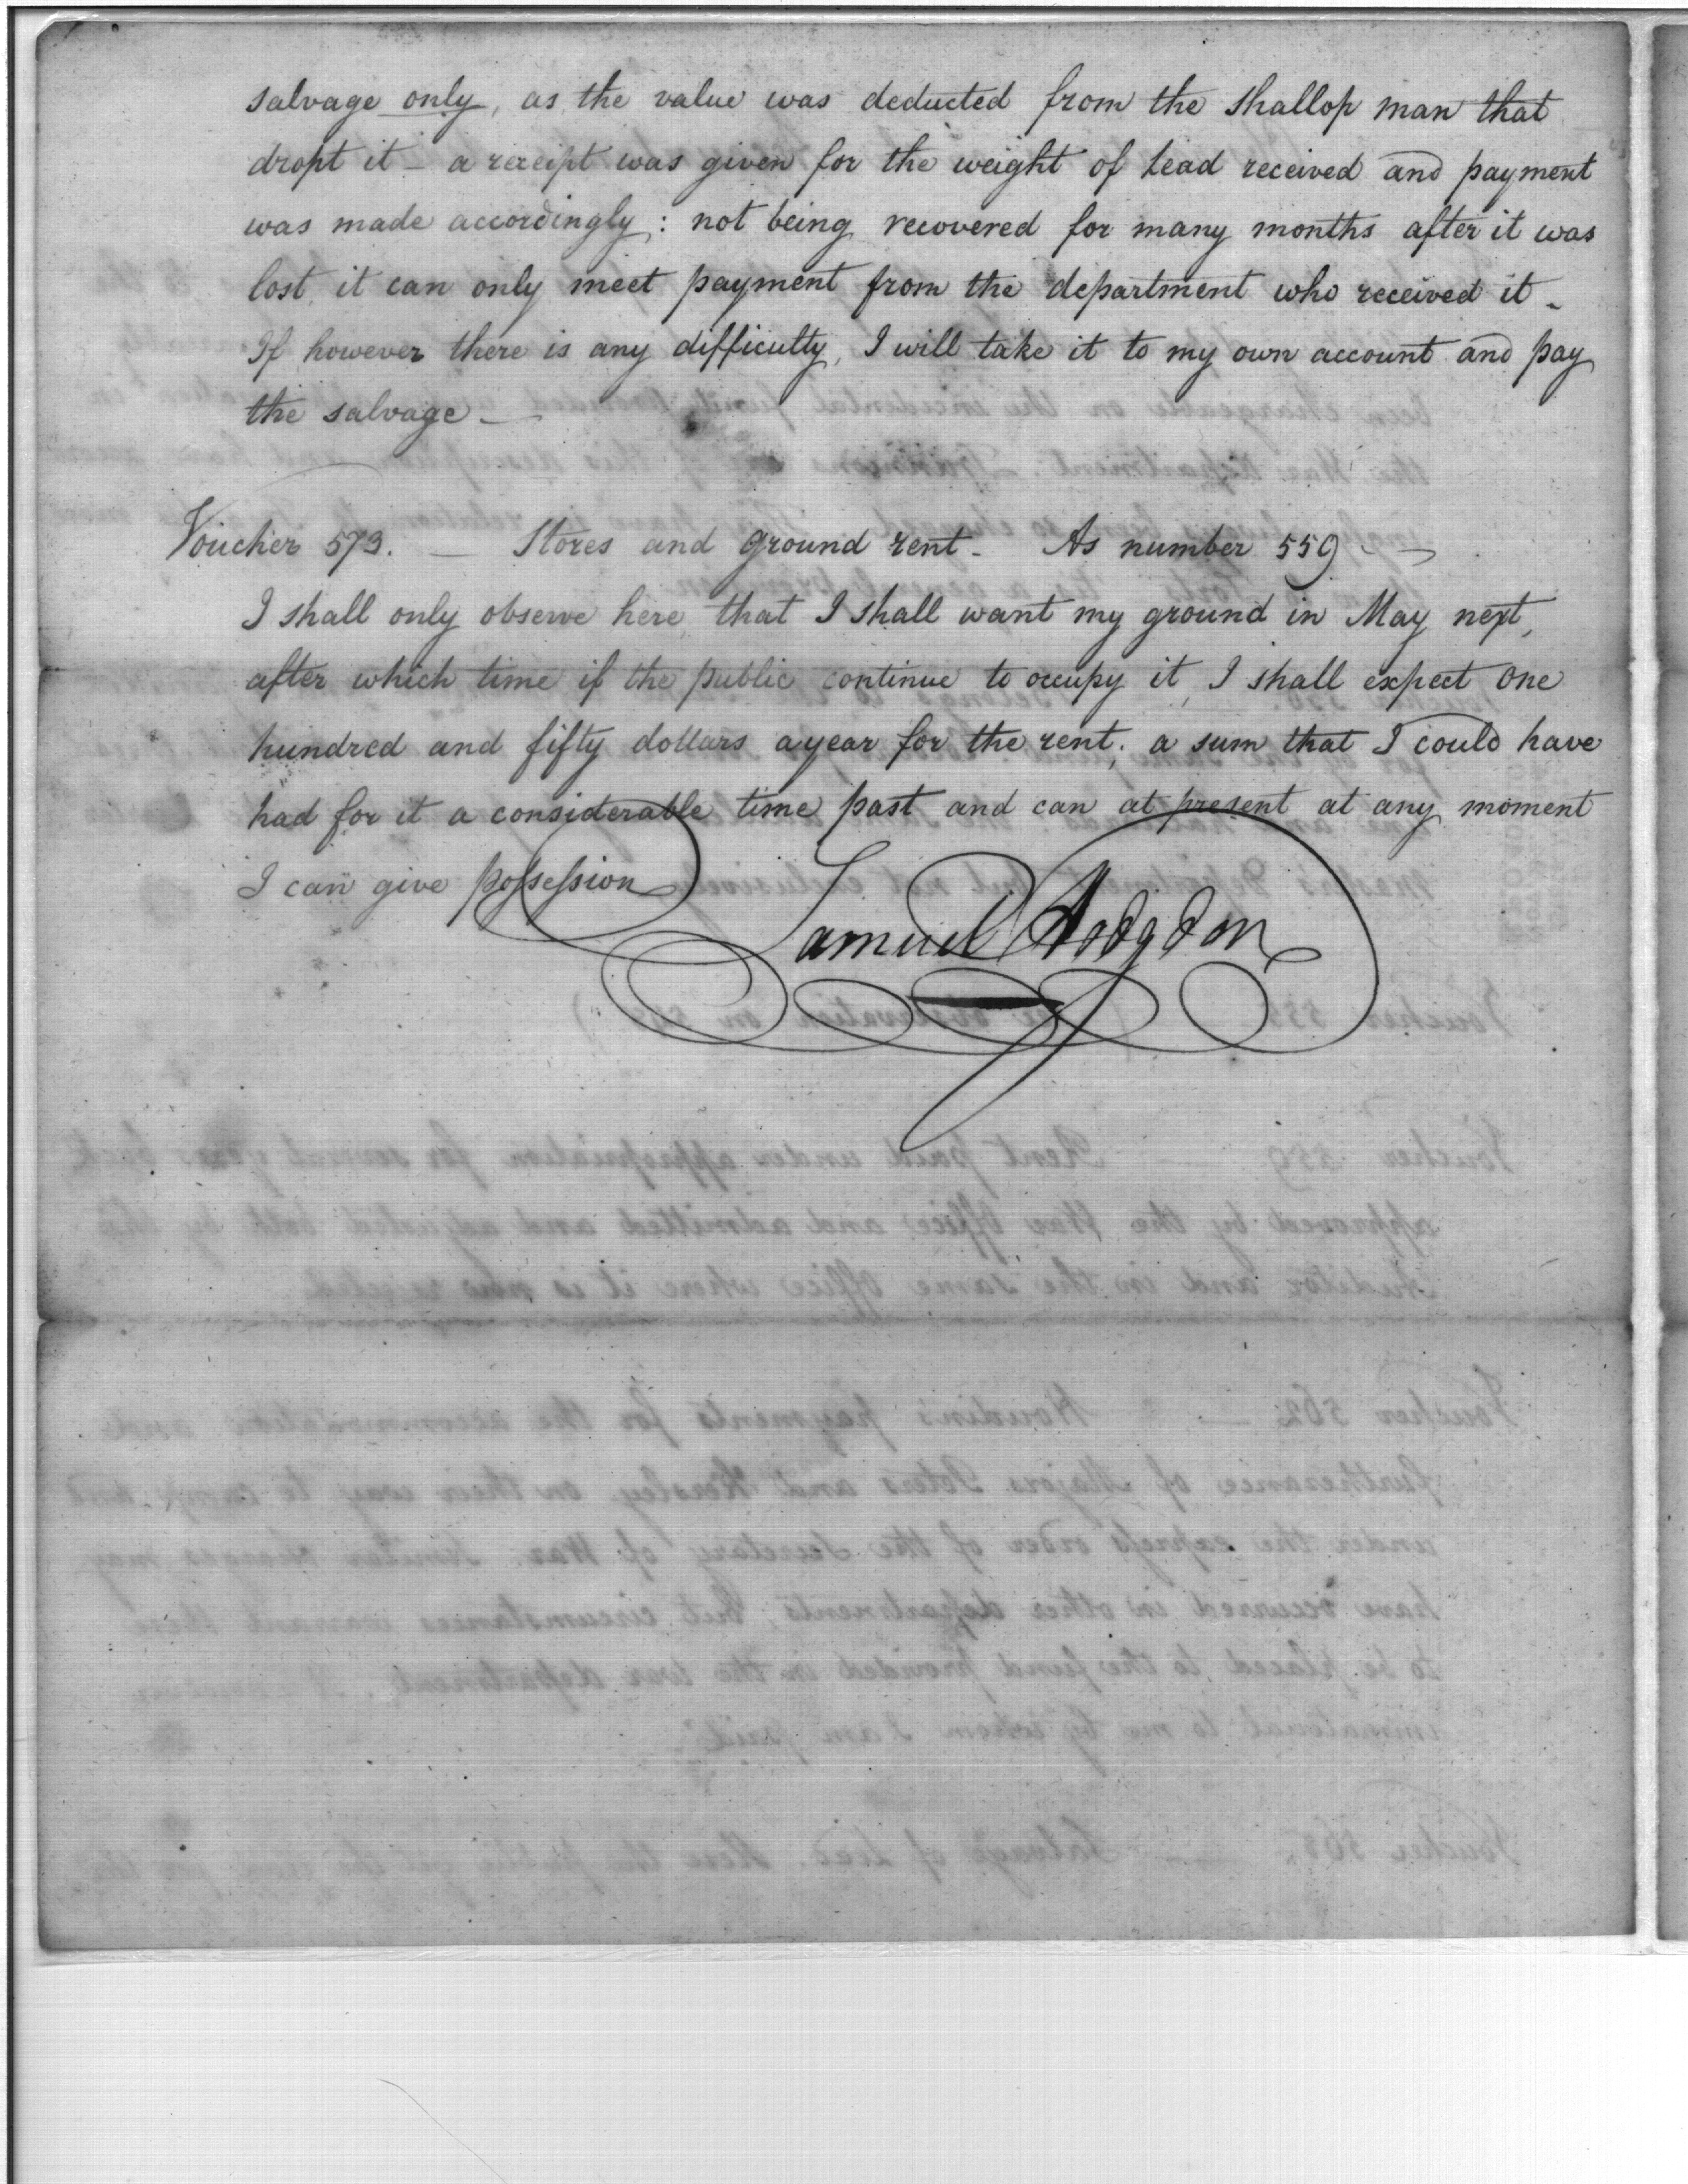 salvage only, as the value was deducted from the shallop man that
dropt it – a receipt was given for the weight of Lead received and payment
was made accordingly: not being recovered for many months after it was
lost, it can only meet payment from the department who received it –
If however there is any difficulty, I will take it to my own account and pay
the salvage –
Voucher 573. – Stores and ground rent – As number 559 –
I shall only observe here, that I shall want my ground in May next,
after which time if the public continue to occupy it, I shall expect One
hundred and fifty dollars a year for the rent; a sum that I could have
had for it a considerable time past and can at present at any moment
I can give possession
Samuel Hodgdon